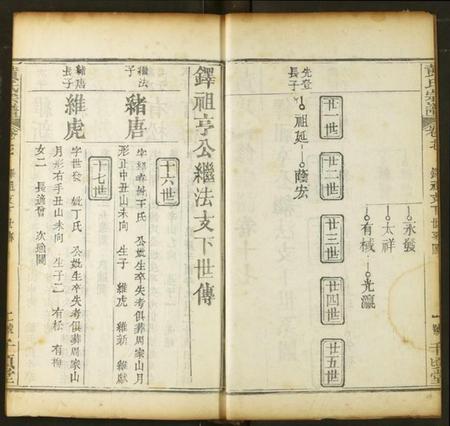 先登
長子
祖延
蔭宏
廿一世
廿二世
廿三世
廿四世
廿五世
永發
太祥
有棫
光瀛
千頃堂
鐸祖亨公繼法支下世傳
十六世
繼法
子
緒唐
丁氏 公妣生卒失考俱葬周家山月
形正中丑山未向 生子 維虎 維新 維獻
十七世
緒唐
長子
維虎
字世發 妣丁氏 公妣生卒失考俱葬周家山
月形右手丑山未向 生子二 有松 有梅
女二 長適曾 次適關